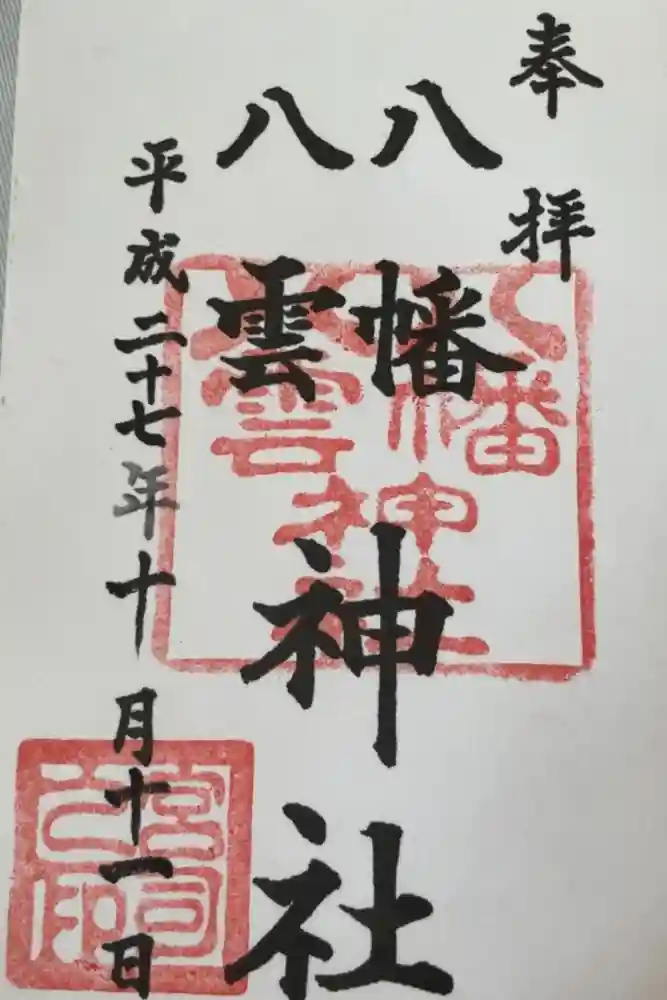 奉拝
八幡
八雲
神社
平成二十七年十月十一日
八幡
八雲
神社
宮司
之印